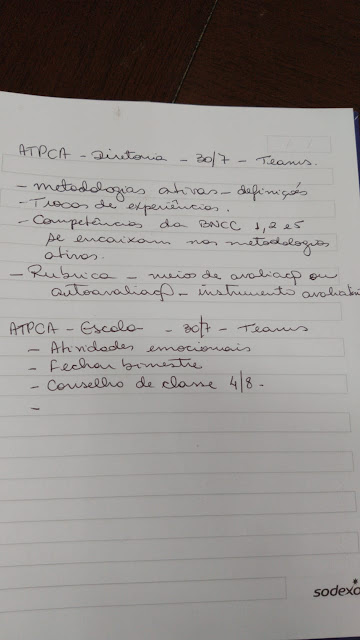 ATPCA - Diretoria - 30/7 - Teams.
- metodologias ativas - definições
- Trocas de experiências.
- Competências da BNCC 1, 2 e 5
se encaixam nas metodologias
ativas.
- Rubrica - meios de avaliaç ou
autoavaliaç - instrumento avaliati
ATPCA - Escola - 30/7 - Teams
- Atividades emocionais
- Fechar bimestre
- Conselho de classe 4/8.
-
sodexo